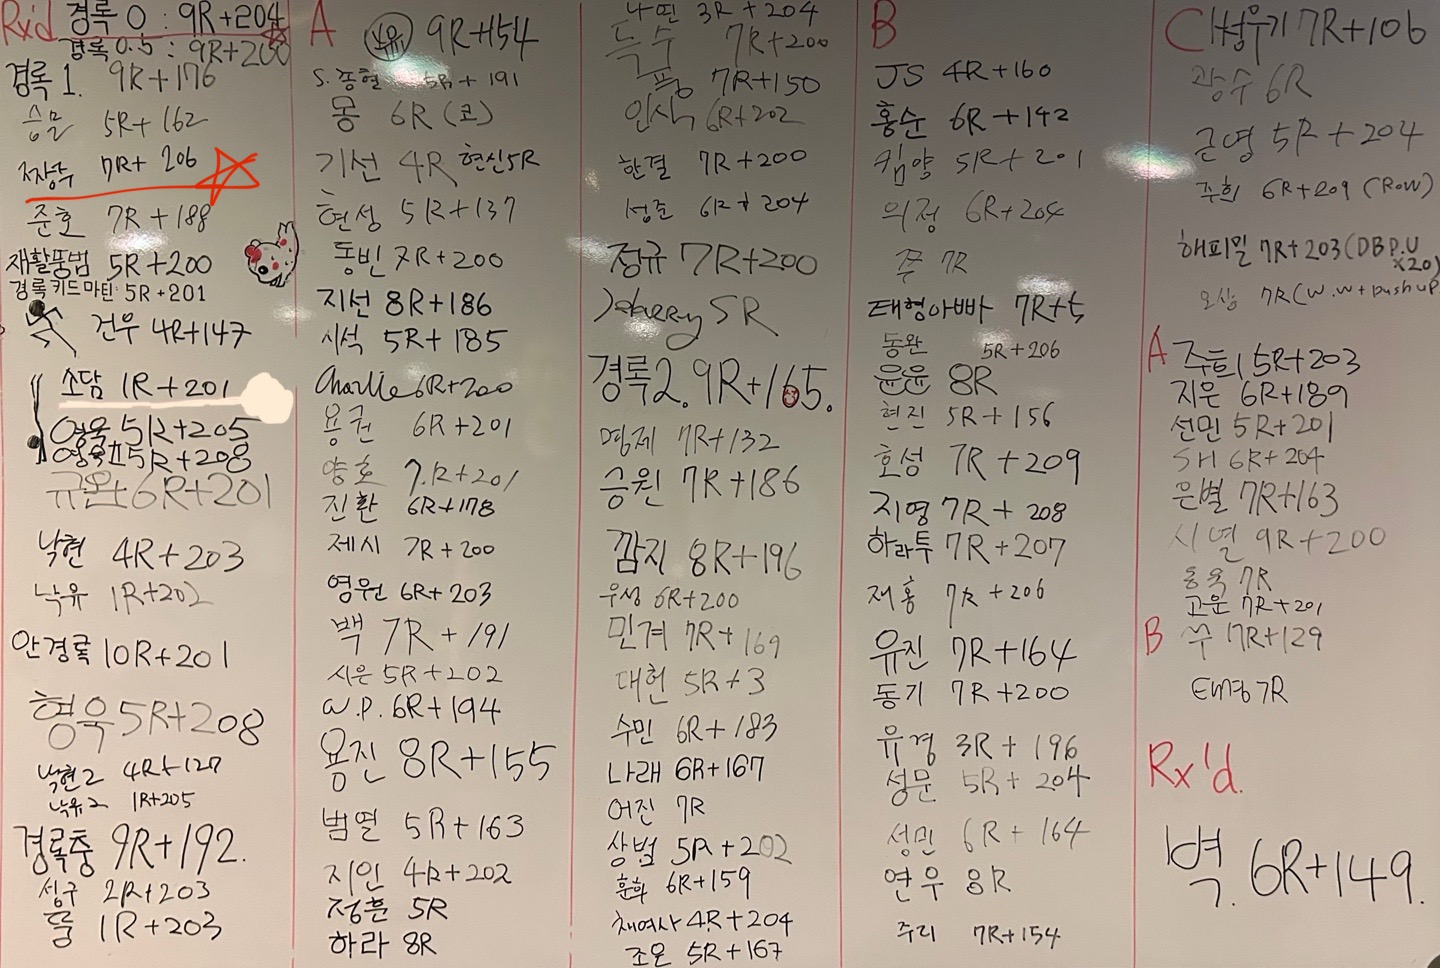 Rx'd
경록 0 : 9R+204
경록 0.5 : 9R+200
경록 1. 9R+176
승문 5R+162
짱수 7R+206
준호 7R+188
재활뚱범 5R+200
경록키드마틴 5R+201
건우 4R+147
소담 1R+201
영욱 5R+205
영욱II 5R+208
규완 6R+201
낙현 4R+203
낙유 1R+202
안경록 10R+201
형욱 5R+208
낙현2 4R+127
낙유2 1R+205
경록충 9R+192.
성구 2R+203
뚬 1R+203
A
9R+154
S. 종현 5R+191
몽 6R (코)
기선 4R 현신5R
현성 5R+137
동빈 7R+200
지선 8R+186
시석 5R+185
Charlie 6R+200
용권 6R+201
양호 7R+201
진환 6R+178
제시 7R+200
영원 6R+203
백 7R+191
시은 5R+202
W.P. 6R+194
용진 8R+155
범열 5R+163
지인 4R+202
정훈 5R
하라 8R
나띤 3R+204
득수 7R+200
퐁 7R+150
인식 6R+202
한결 7R+200
성준 6R+204
정규 7R+200
5R
경록2. 9R+165.
명제 7R+132
승원 7R+186
깜지 8R+196
우성 6R+200
민겨 7R+169
대헌 5R+3
수민 6R+183
나래 6R+167
어진 7R
상범 5R+202
훈화 6R+159
채여사 4R+204
조은 5R+167
B
JS 4R+160
홍순 6R+142
킴약 5R+201
의정 6R+204
쭌 7R
태형아빠 7R+5
동완 5R+206
윤윤 8R
현진 5R+156
호성 7R+209
지영 7R+208
하라투 7R+207
재홍 7R+206
유진 7R+164
동기 7R+200
유경 3R+196
성문 5R+204
성민 6R+164
연우 8R
주리 7R+154
C
7R+106
광수 6R
근영 5R+204
주희 6R+209 (Row)
해피밀 7R+203 (DB P.U x20)
오상 7R (W.W+push up)
A
주희1 5R+203
지은 6R+189
선민 5R+201
SH 6R+204
은별 7R+163
시열 9R+200
홍욱 7R
고운 7R+201
B
쑤 7R+129
태경 7R
Rx'd.
벽. 6R+149.